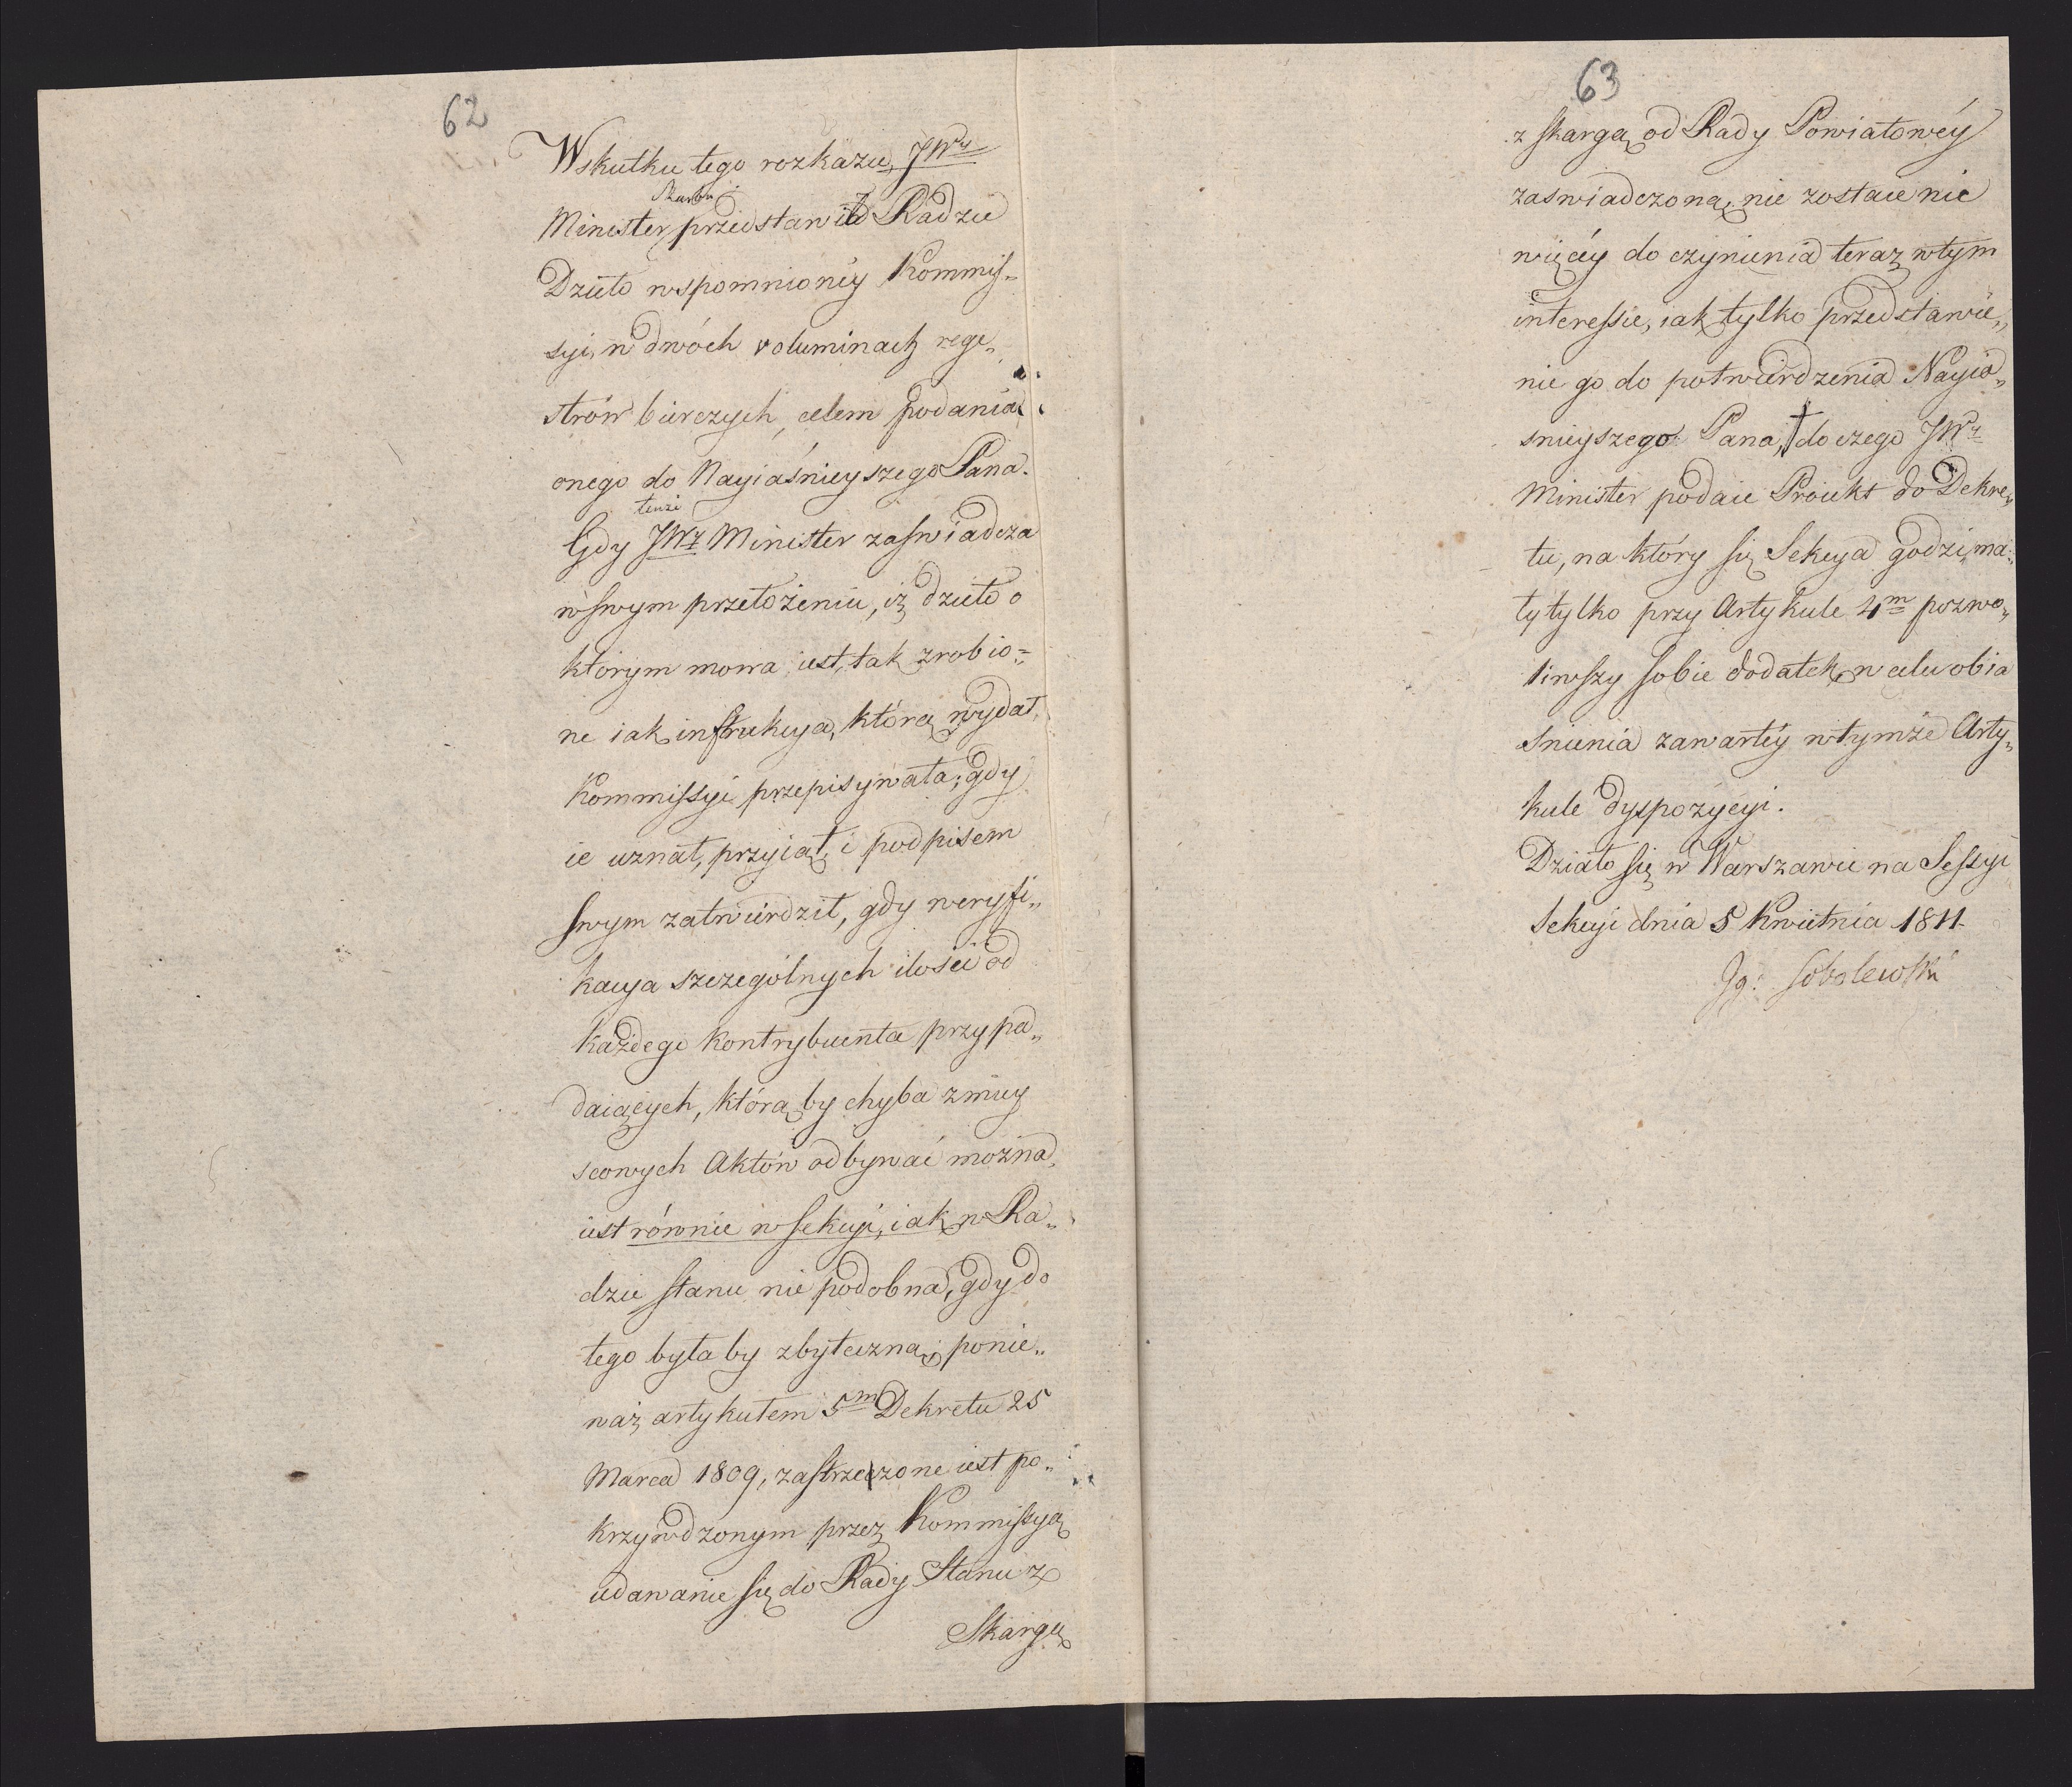 62
Wskutku tego rozkazu, JWy
Skarbu
Minister przedstawił Radzie
Dzieło wspomnionéy Kommis„
syi, w dwóch voluminach rege„
strów bierczych, celem podania
onego do Nayiaśnieyszego Pana.
tenże
Gdy JWy Minister zaswiadcza
w swym przełożeniu, iż dzieło o
którym mowa iest, tak zrobio=
ne iak instrukcya, którą wydał
Kommissyi przepisywała; gdy
ie uznał, przyiął, i podpisem
swym zatwierdził, gdy weryfi„
kacya szczególnych ilości od
każdego Kontrybuenta przypa„
daiących, którąby chyba zmiey
scowych Aktów odbywać można,
iest równie w Sekcyi, iak w Ra„
dzie Stanu nie podobna, gdy do
tego byłaby zbyteczną; ponie„
waż artykułem 5m Dekretu 25
Marca 1809, zastrzeżone iest po„
krzywdzonym przez Kommissyą
udawanie się do Rady Stanu z
Skargą
63
z skargą od Rady Powiatowéy
zaswiadczoną, nie zostaie nic
więcéy do czynienia teraz wtym
interessie, iak tylko przedstawie„
nie go do potwierdzenia Nayia„
snieyszego Pana, † do czego JWy
Minister podaie Proiekt do Dekre„
tu, na który się Sekcya godzi, ma„
ły tylko przy Artykule 4m pozwo„
liwszy sobie dodatek, w celu obia
snienia zawartéy wtymże Arty„
kule dyspozycyi.
Działo się w Warszawie na Sessyi
Sekcyi dnia 5 Kwietnia 1811.
Ig: Sobolewski